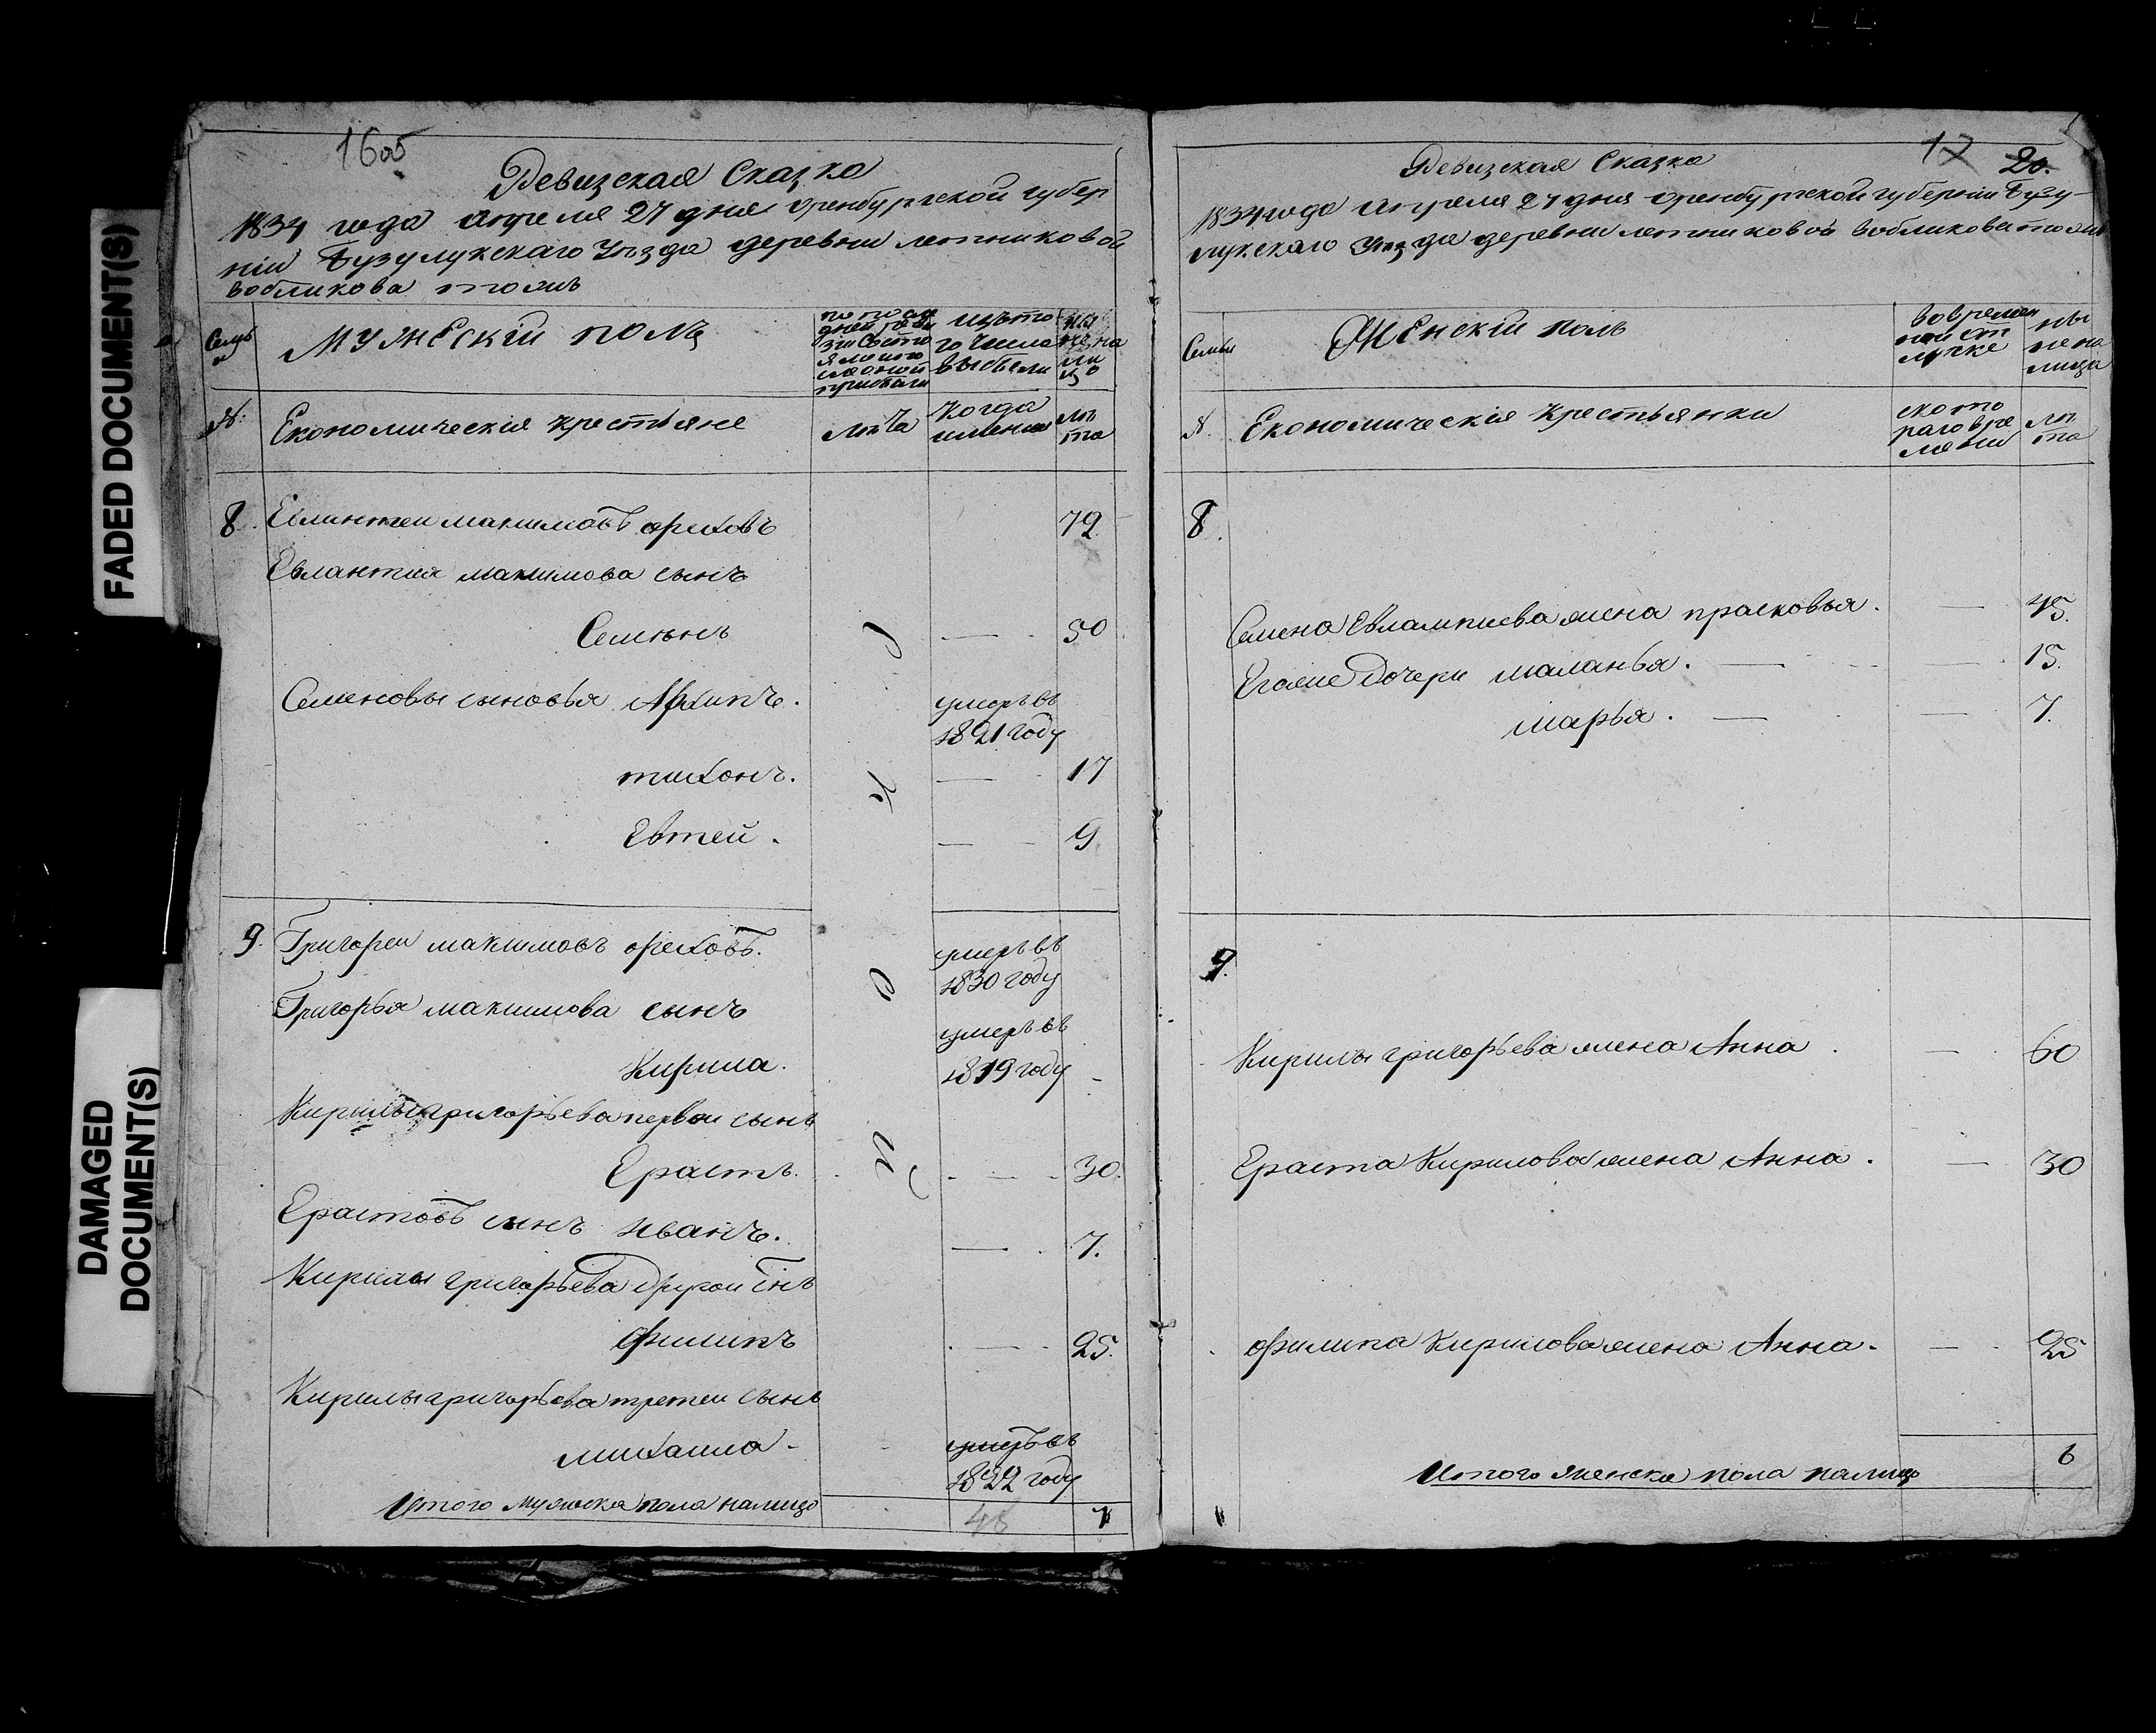 FADED DOCUMENT(S)
DAMAGED
DOCUMENT(S)
16об
Ревизская Сказка
1834 года апреля 27 дня оренбургской губер
ніи Бузулукскаго Уѣзда деревни летниковой
вобликова тожъ
Семьи
Мужескій полъ
по послѣ
дней реви
зіи состо
яло и по
слѣ оной
прибыли
изъ то
го числа
выбыли
ны
не на
ли
цо
№:
Економическія крестьяне
лѣта
когда
именно
лѣ
та
8. Евлантеи макимовъ ореховъ 79
Евлантия макимова сынъ
Семіонъ 50
Семеновы сыновья Архипъ. умеръ въ
1821 году
тихонъ. 17
Евтей. 9
9. Григореи макимовъ ореховъ. умеръ въ
1830 году
Григорья макимова сынъ
Кирила. умеръ въ
1819 году
Кирилы григорьева первои сынъ
Ерастъ. 30.
Ерастовъ сынъ иванъ. 7.
Кирилы григорьева другои снъ
Филипъ 25.
Кирилы григорьева третеи сынъ
михаила умеръ въ
1822 году
Итого мужска пола налицо 7
48
17 20.
Ревизская Сказка
1834 года апреля 27 дня оренбургской губерніи Бузу-
лукскаго Уѣзда деревни летниковой вобликова тожъ
Семьи
Женскій полъ
во времен
ной от
лучке
ны
не на
лицо
№.
Економическія крестьянки
с кото
раго вре
мени
лѣ
та
8.
Семена Евлампиева жена прасковья. 45.
Егоже дочери маланья. 15.
марья. 7.
9.
Кирилы григорьева жена Анна. 60
Ераста Кирилова жена Анна. 30
Филипа Кирилова жена Анна. 25
Итого женска пола налицо 6